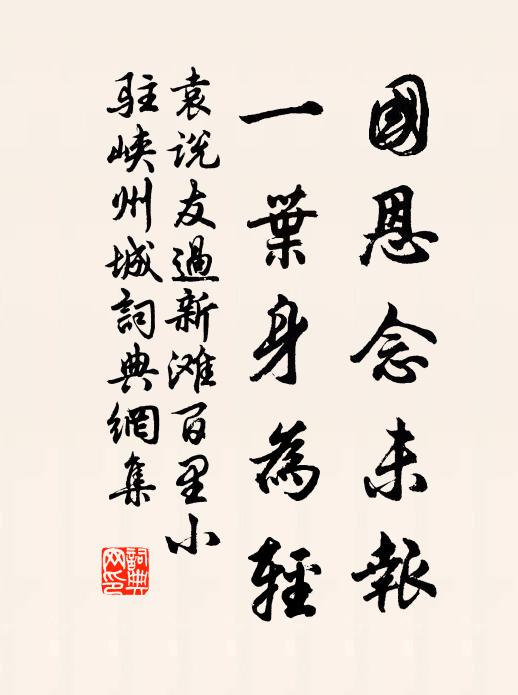 國恩念未報
一葉身為輕
袁説友過新滩百里小
駐峽州城詞典網集
詞典網印